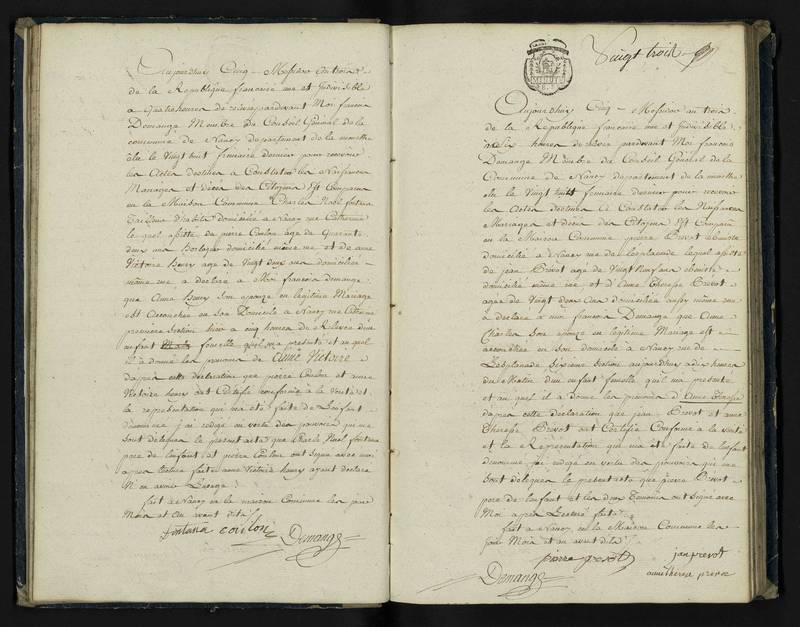 Aujourdhuy Cinq Messidor an trois
de la Republique francaise une et Indivisible
a quatre heures de relevee pardevant Moi francois
Demange Membre du Conseil General de la
commune de Nancy departement de la meurthe
élu le Vingt huit frimaire dernier pour recevoir
les Actes destinés a Constater les Naissances
Mariages et décès des Citoyens Est Comparu
en la Maison Commune Charles Noel fontana
domicilié a Nancy rue Catherine
lequel assisté de pierre Coulon agé de Quarante
deux ans horloger domicilié même rue et de anne
Victoire henry agee de Vingt deux ans domiciliée
même rue a déclaré a Moi francois demange
que Anne henry son epouse en legitime Mariage
est Accouchée en son Domicile a Nancy rue Catherine
premiere section hier a cinq heures de Relevée d'un
enfant femelle quil ma presenté et au quel
il a donné les prenoms de Anne Victoire
dapres cette declaration que pierre Coulon et anne
Victoire henry ont Certifié conforme a la Verité et
la representation qui ma été faite de Lenfant
denommé j'ai redigé en vertu des pouvoirs qui me
sont delegués le present acte que Charle Noel fontana
pere de lenfant et pierre Coulon ont signé avec moi
apres lecture faite anne Victoire henry ayant declaré
N'en avoir Lusage
fait a Nancy en la maison Commune les jour
Mois et an avant dits
fontana coulon Demange
Vingt trois
Aujourdhuy Cinq Messidor an trois
de la Republique francaise une et Indivisible
heures de pardevant Moi francois
Demange Membre du Conseil General de la
Commune de Nancy departement de la meurthe
élu le Vingt huit frimaire dernier pour recevoir
les Actes destinés a Constater les Naissances
Mariages et décès des Citoyens Est Comparu
en la Maison Commune pierre Prevot ebeniste
domicilié a Nancy rue de Lesplanade lequel assisté
de jean Prevot agé de Vingt Neuf ans ebeniste
domicilié même rue et d'Anne Therese Prevot
agée de Vingt deux ans domiciliée aussy même rue
a déclaré a moi francois Demange que Anne
Charles son epouse en legitime Mariage est
accouchée en son domicile a Nancy rue de
Lesplanade Sixieme section aujourdhui a dix heures
du Matin d'un enfant femelle quil ma presenté
et au quel il a donné les prenoms d'Anne Therese
dapres cette declaration que jean Prevot et anne
Therese Prevot ont Certifié Conforme a la verité
et la Representation qui ma été faite de lenfant
denommé jai redigé en vertu des pouvoirs qui me
sont delegués le present acte que pierre Prevot
pere de lenfant et les deux temoins ont signé avec
Moi apres Lecture faite
fait a Nancy en la Maison Commune les
jour Mois et an avant dits
pierre prevot jean prevot
Demange anne therese prevot